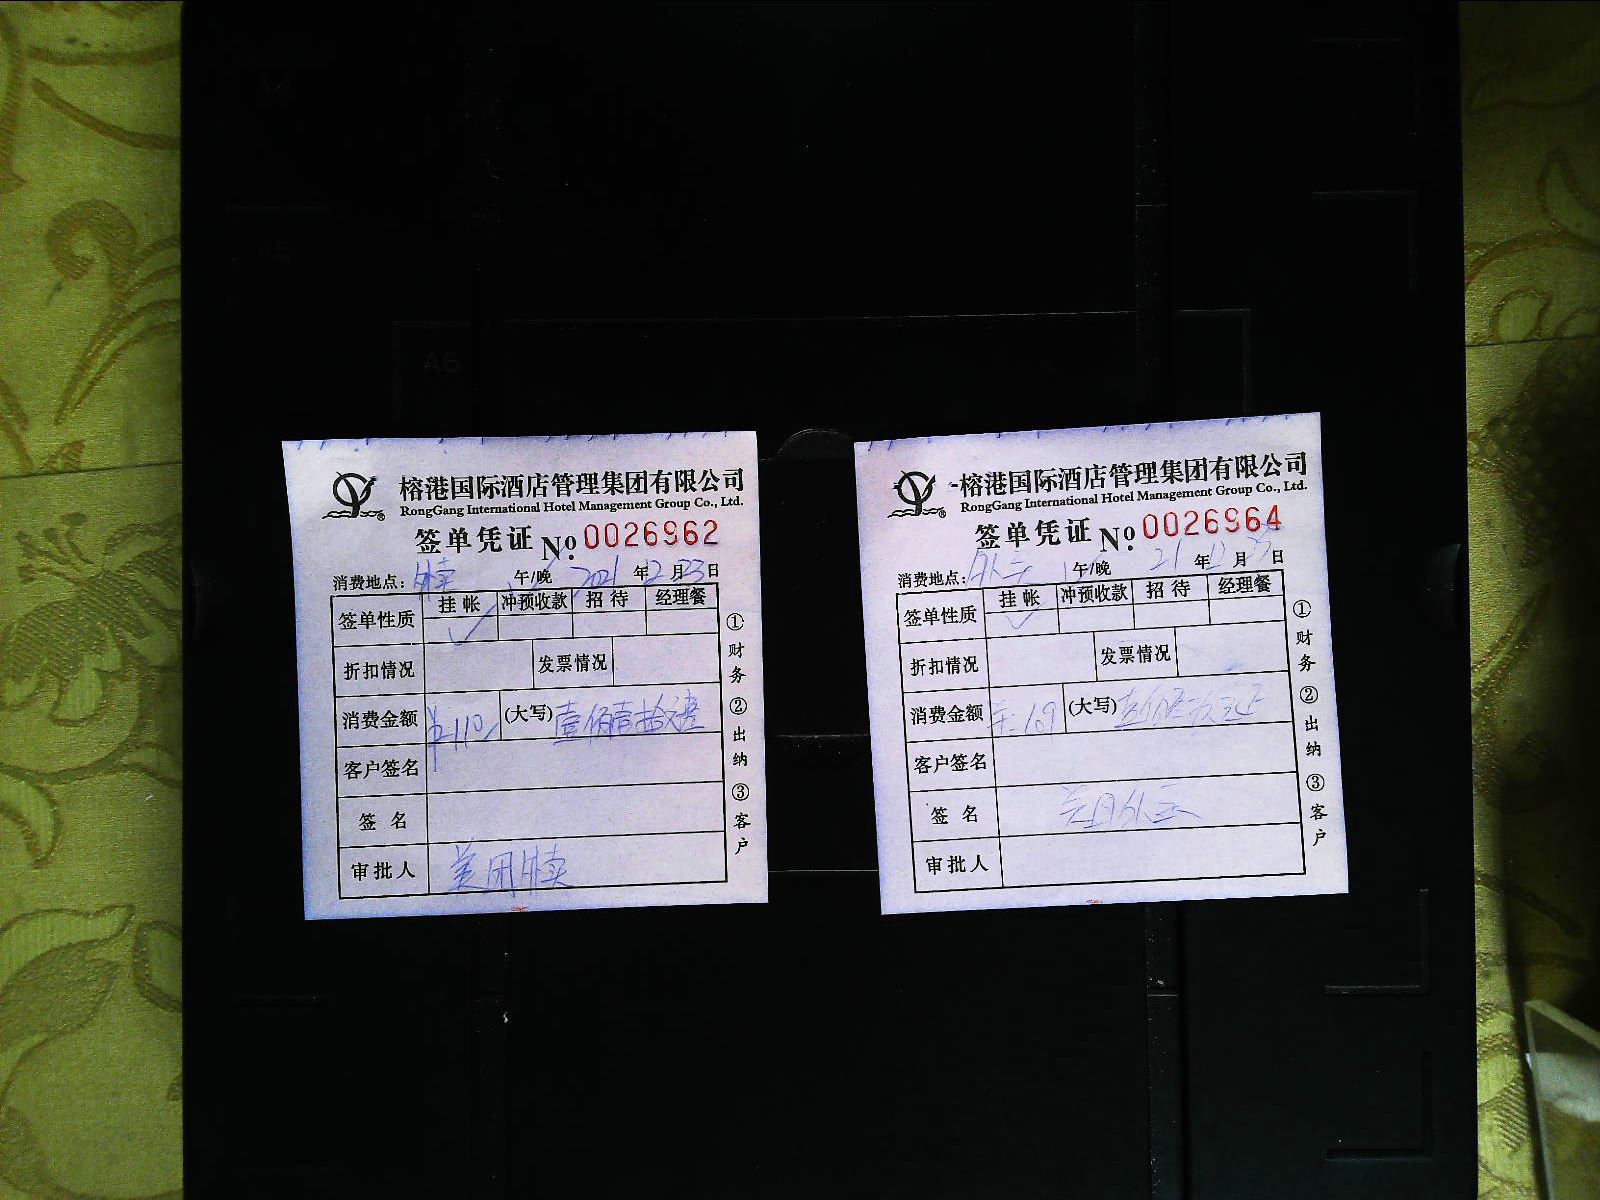 榕港国际酒店管理集团有限公司
RongGang International Hotel Management Group Co., Ltd.
签单凭证 No. 0026962
消费地点: 外卖 午/晚 2021 年 12 月 23 日
签单性质 挂帐 冲预收款 招待 经理餐
折扣情况 发票情况
消费金额 ¥110 (大写) 壹佰壹拾元整
客户签名
签名
审批人 美团外卖
①财务 ②出纳 ③客户
榕港国际酒店管理集团有限公司
RongGang International Hotel Management Group Co., Ltd.
签单凭证 No. 0026964
消费地点: 外卖 午/晚 21 年 12 月 23 日
签单性质 挂帐 冲预收款 招待 经理餐
折扣情况 发票情况
消费金额 169 (大写)
客户签名
签名
审批人
①财务 ②出纳 ③客户
A6